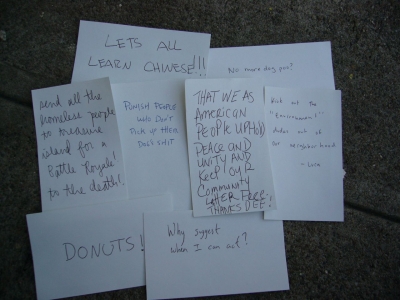 LETS ALL
LEARN CHINESE!!!
No more dog poo?
send all the
homeless people
to treasure
island for a
Battle Royale!
to the death!
PUNISH PEOPLE
WHO DON'T
PICK UP THEIR
DOG'S SHIT
THAT WE AS
AMERICAN
PEOPLE UPHOLD
PEACE AND
UNITY AND
KEEP OUR
Community
LITTER FREE.
THANKS DEE!
Kick out the
"Environment"
dudes out of
our neighborhood
DONUTS!
Why suggest
when I can act?